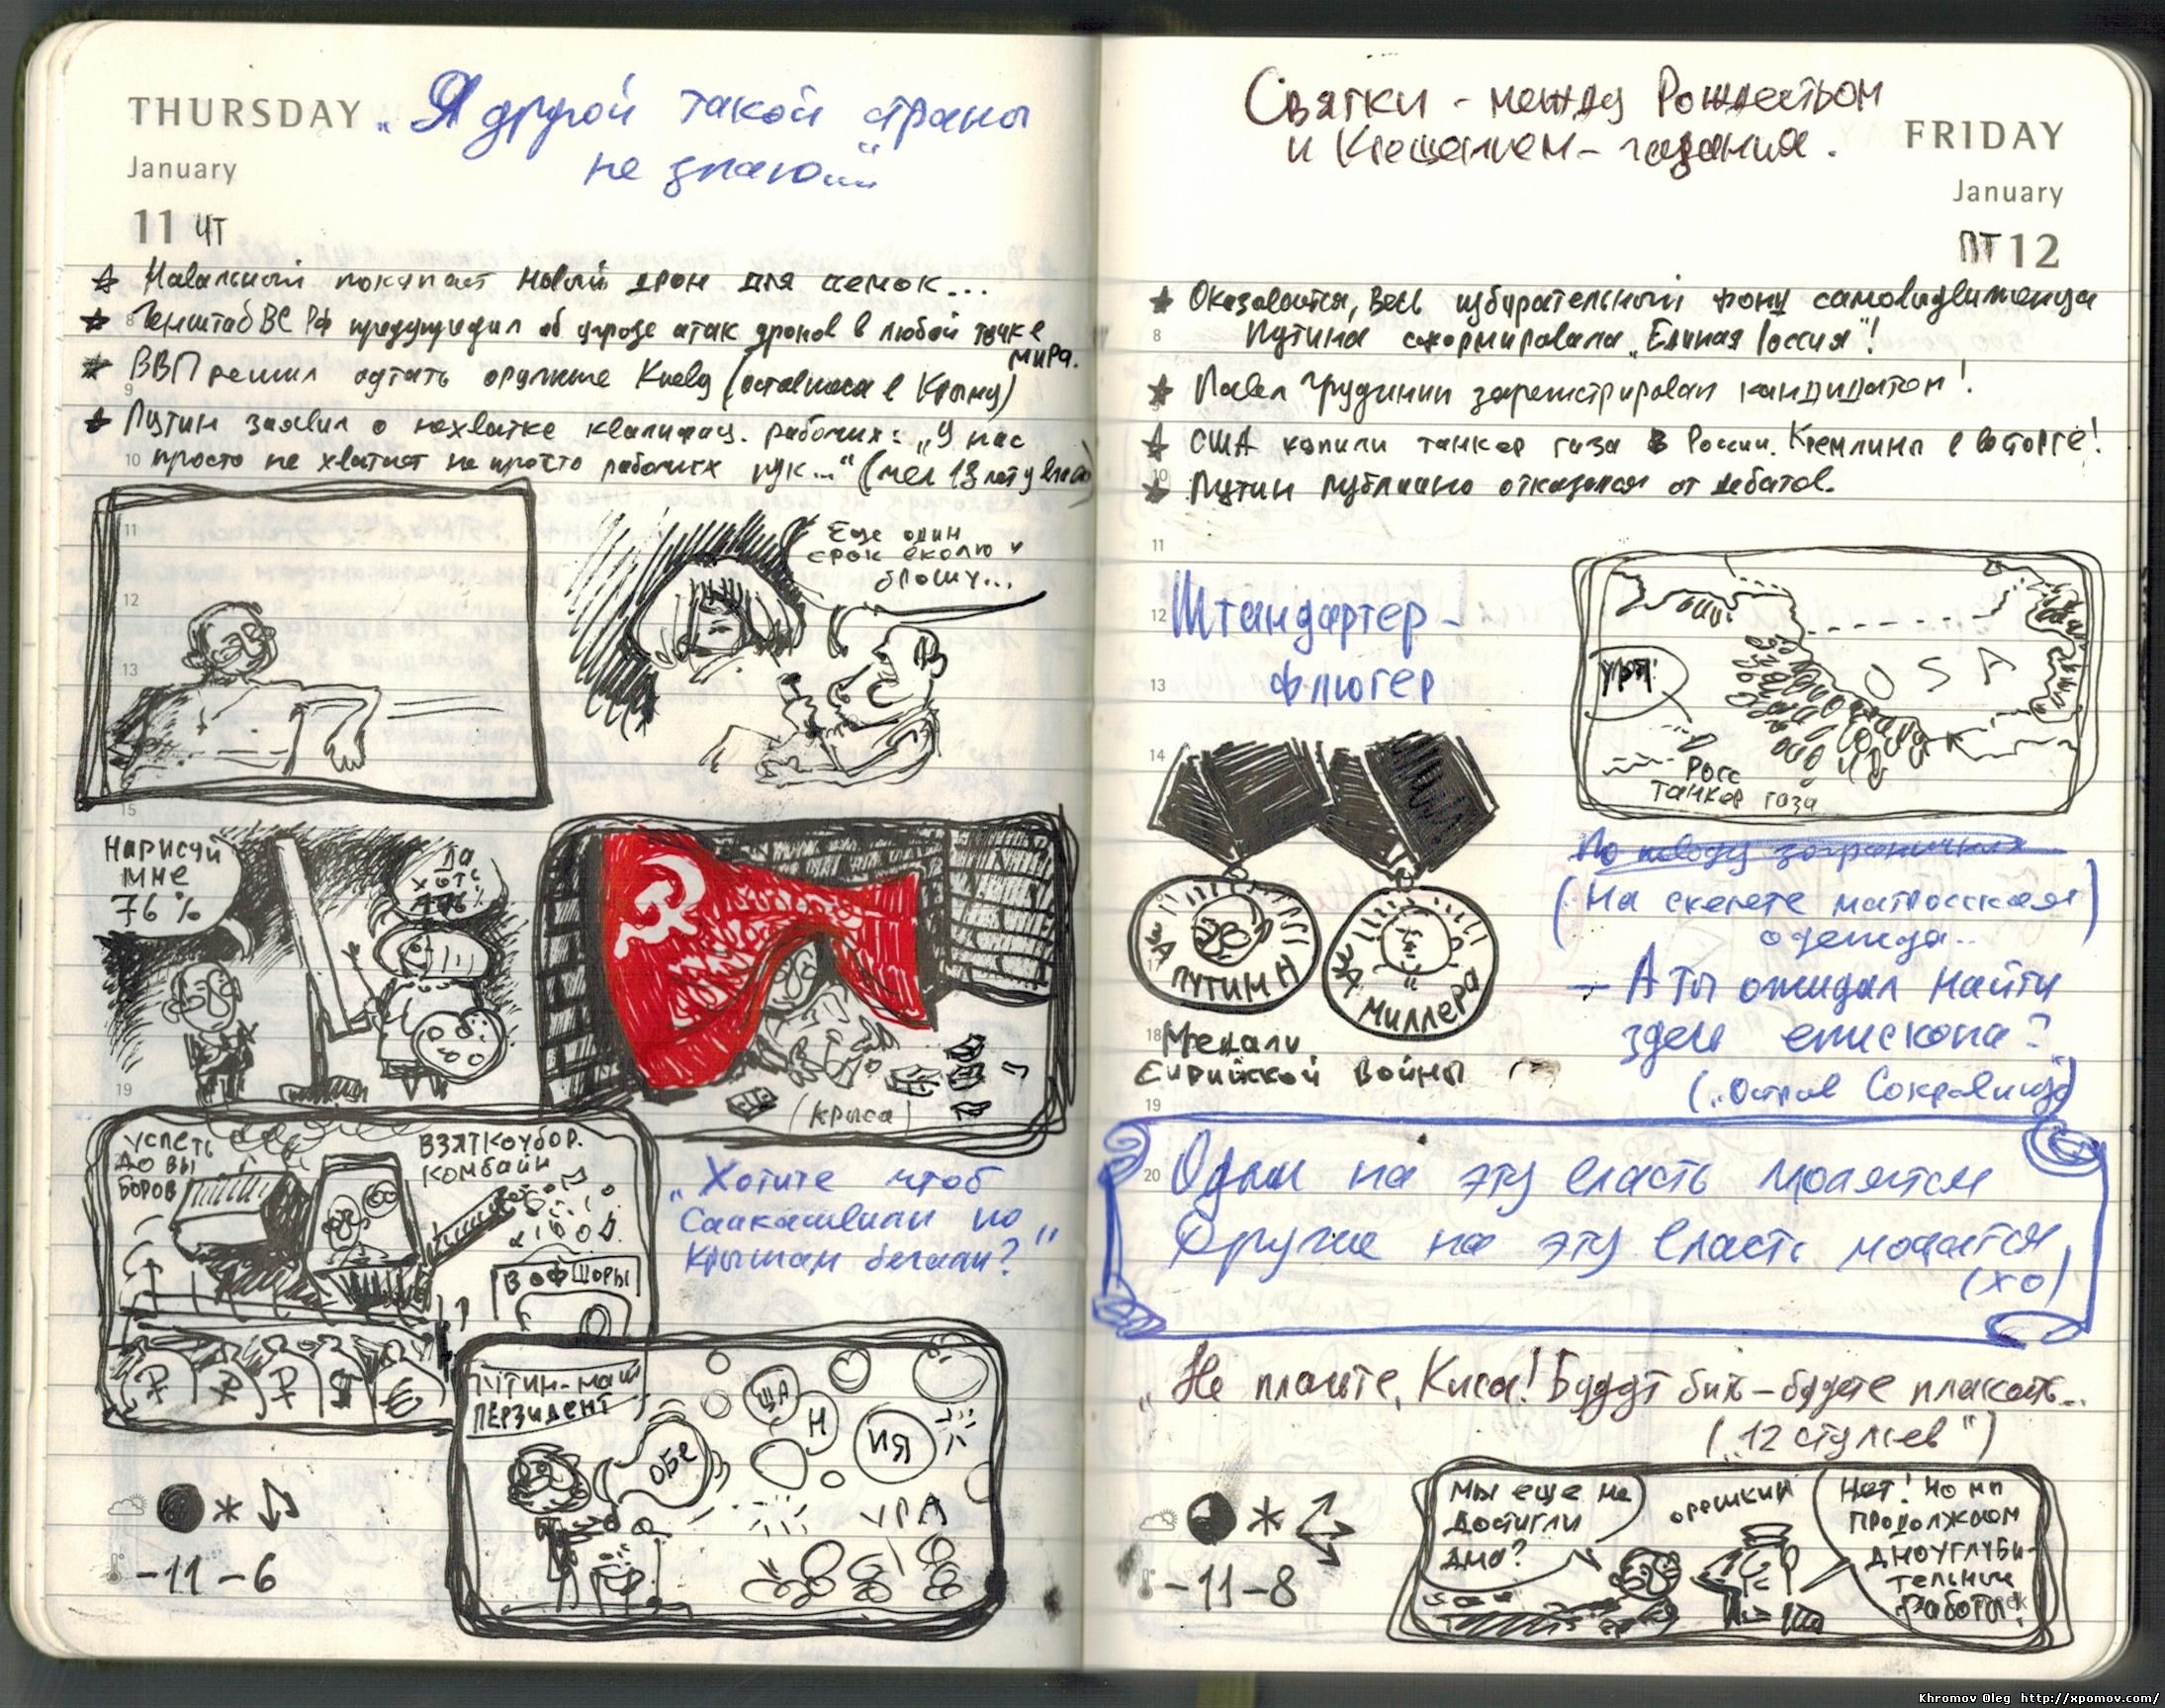 THURSDAY
January
11 ЧТ
„Я другой такой страны
не знаю..."
Навальный покупает новый дрон для съемок...
Генштаб ВС РФ предупредил об угрозе атак дронов в любой точке
мира.
ВВП решил отдать оружие Киеву (оставшееся в Крыму)
Путин заявил о нехватке квалифиц. рабочих: „У нас
просто не хватает не просто рабочих рук..."
Еще один
срок
брошу...
Нарисуй
мне
76%
Да
хоть
176%
(крыса)
Успеть
до вы
боров
Взяткоубор.
комбайн
В офшоры
„Хотите чтоб
Саакашвили по
крышам бегали?"
Путин-наш
перзидент
ОБЕ
ЩА
Н
ИЯ
УРА
-11 -6
FRIDAY
January
ПТ 12
Святки - между Рождеством
и Крещением - гадания.
Оказывается, весь избирательный фонд самовыдвиженца
Путина сформировала „Единая Россия"!
Павел Грудинин зарегистрирован кандидатом!
США купили танкер газа в России. Кремлины в восторге!
Путин публично отказался от дебатов.
Штандартер-
флюгер
Ура!
USA
Росс
танкер газа
Путина
Миллера
Медали
Сирийской войны
(На скелете матросская
одежда..
- А ты ожидал найти
здесь епископа?
(„Остров Сокровищ")
Одни на эту власть молятся
Другие на эту власть
(хо)
„Не плачьте, Киса! Будут бить - будете плакать..
(„12 стульев")
Мы еще не
достигли
дна?
Орешкин
Нет! Но мы
продолжаем
дноуглуби-
тельные
работы!
-11 -8
Khromov Oleg http://xpomov.com/